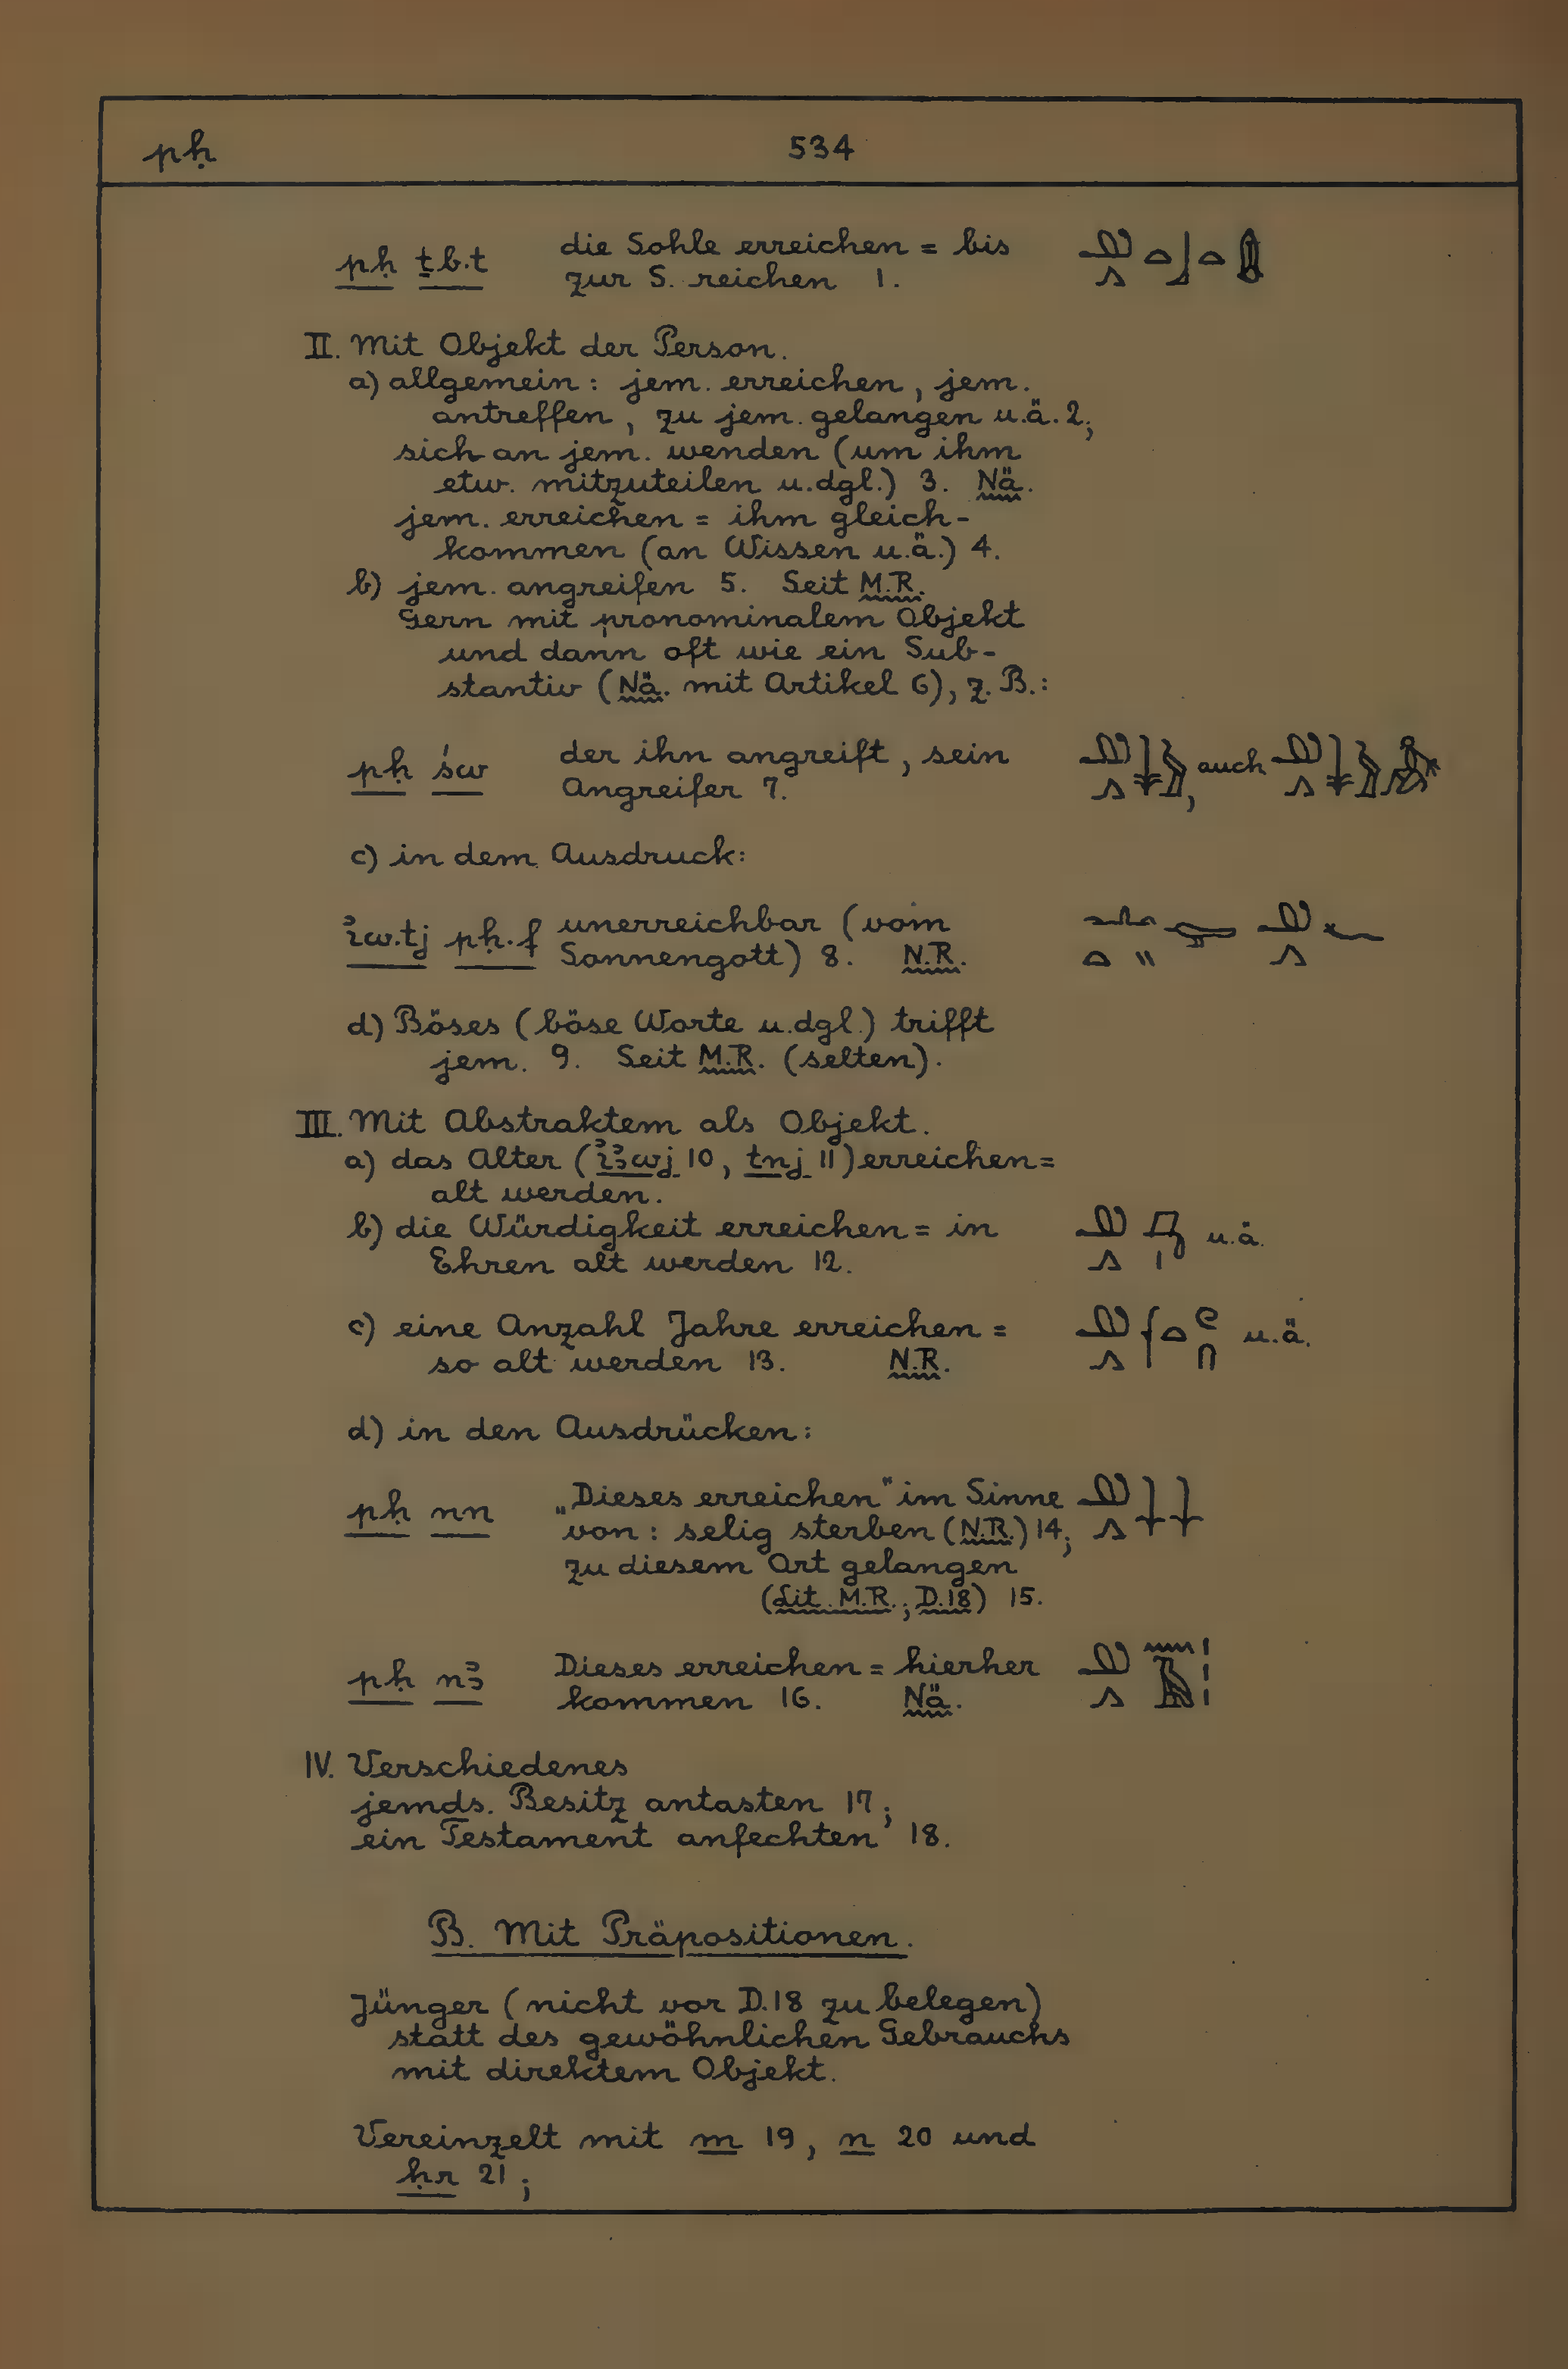 pḥ 534
pḥ ṯb.t die Sohle erreichen = bis
zur S. reichen 1.
II. Mit Objekt der Person.
a) allgemein: jem. erreichen, jem.
antreffen, zu jem. gelangen u.ä. 2;
sich an jem. wenden (um ihm
etw. mitzuteilen u.dgl.) 3. Nä.
jem. erreichen = ihm gleich-
kommen (an Wissen u.ä.) 4.
b) jem. angreifen 5. Seit M.R.
Gern mit pronominalem Objekt
und dann oft wie ein Sub-
stantiv (Nä. mit Artikel 6), z.B.:
pḥ św der ihn angreift, sein , auch
Angreifer 7.
c) in dem Ausdruck:
ꞽw.tj pḥ.f unerreichbar (vom
Sonnengott) 8. N.R.
d) Böses (böse Worte u.dgl.) trifft
jem. 9. Seit M.R. (selten).
III. Mit Abstraktem als Objekt.
a) das Alter (ꞽꜣwj 10, tnj 11) erreichen =
alt werden.
b) die Würdigkeit erreichen = in u.ä.
Ehren alt werden 12.
c) eine Anzahl Jahre erreichen = u.ä.
so alt werden 13. N.R.
d) in den Ausdrücken:
pḥ nn „Dieses erreichen" im Sinne
von: selig sterben (N.R.) 14;
zu diesem Ort gelangen
(Lit. M.R.; D.18) 15.
pḥ nꜣ Dieses erreichen = hierher
kommen 16. Nä.
IV. Verschiedenes
jemds. Besitz antasten 17;
ein Testament anfechten 18.
B. Mit Präpositionen.
Jünger (nicht vor D.18 zu belegen)
statt des gewöhnlichen Gebrauchs
mit direktem Objekt.
Vereinzelt mit m 19, n 20 und
ḥr 21;